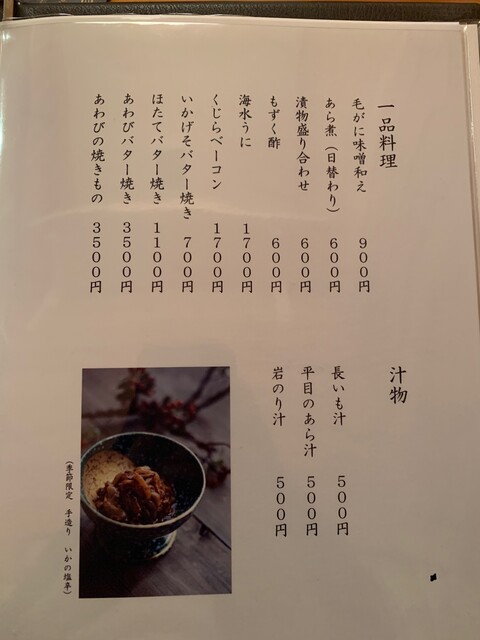 一品料理
毛がに味噌和え 900円
あら煮（日替わり） 600円
漬物盛り合わせ 600円
もずく酢 600円
海水うに 1700円
くじらベーコン 1700円
いかげそバター焼き 700円
ほたてバター焼き 1100円
あわびバター焼き 3500円
あわびの焼きもの 3500円
汁物
長いも汁 500円
平目のあら汁 500円
岩のり汁 500円
（季節限定 手造り いかの塩辛）